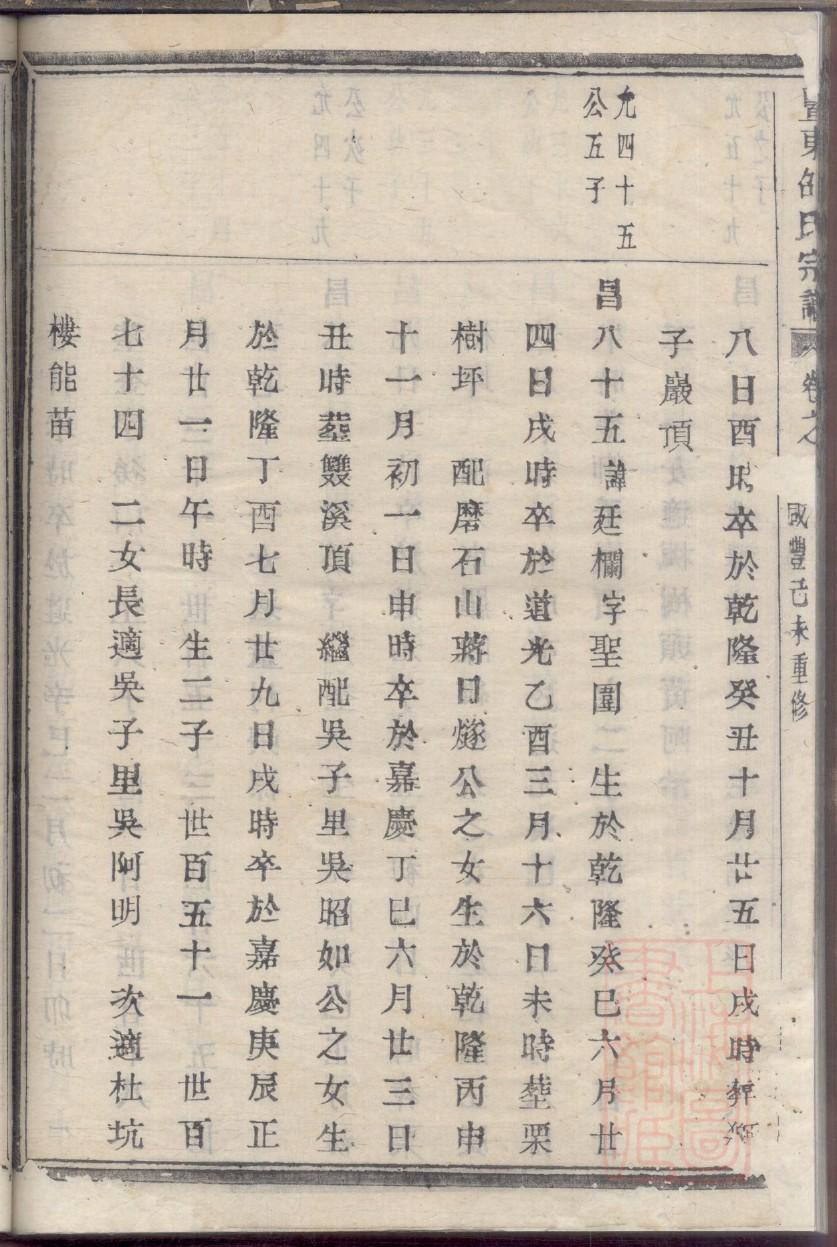 暨東邵氏宗譜 卷之
咸豐己未重修
八日酉時卒於乾隆癸丑十月廿五日戌時葬
子巖頂
允四十五
公五子
昌八十五諱廷欄字聖圍二生於乾隆癸巳六月廿
四日戌時卒於道光乙酉三月十六日未時塟栗
樹坪 配磨石山蔣日燧公之女生於乾隆丙申
十一月初一日申時卒於嘉慶丁巳六月廿三日
丑時塟雙溪頂 繼配吳子里吳昭如公之女生
於乾隆丁酉七月廿九日戌時卒於嘉慶庚辰正
月廿一日午時 生二子 世百五十一 世百
七十四 二女長適吳子里吳阿明 次適杜坑
樓能苗